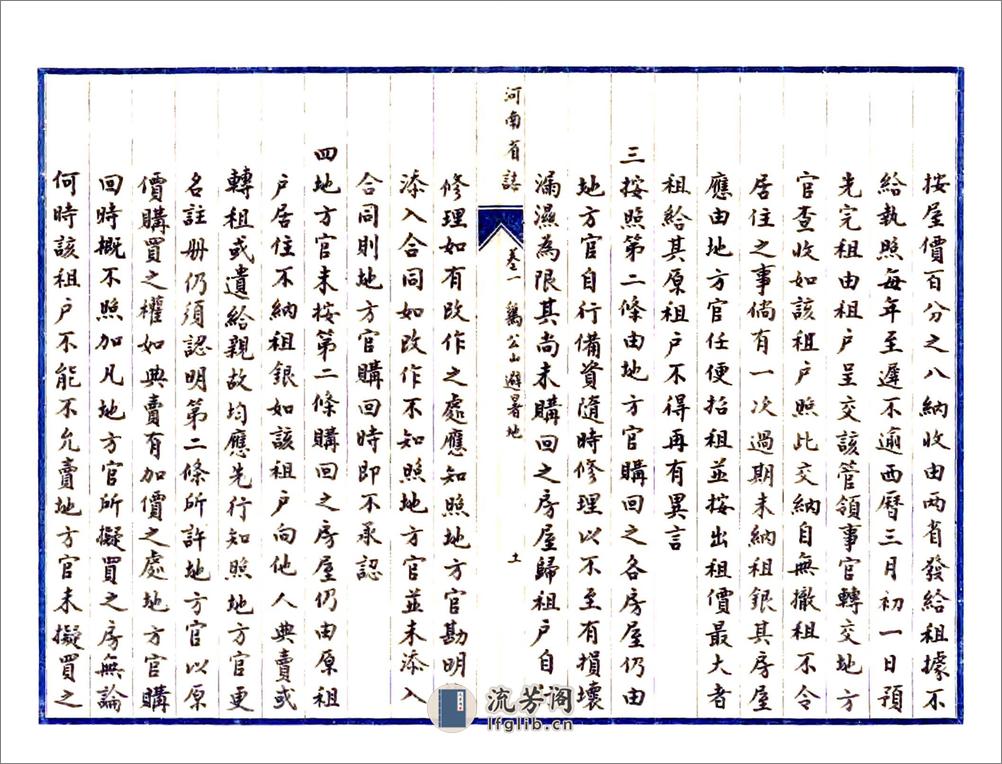 按屋價百分之八納收由兩省發給租據不
給執照每年至遲不逾西曆三月初一日預
先完租由租户呈交該管領事官轉交地方
官查收如該租户照此交納自無撤租不令
居住之事倘有一次過期未納租銀其房屋
應由地方官任便招租並按出租價最大者
租給其原租户不得再有異言
三按照第二條由地方官購回之各房屋仍由
地方官自行備資隨時修理以不至有損壞
漏濕為限其尚未購回之房屋歸租户自
河南省誌
卷一 鷄公山避暑地
十一
修理如有改作之處應知照地方官勘明
添入合同如改作不知照地方官並未添入
合同則地方官購回時即不承認
四地方官未按第二條購回之房屋仍由原租
户居住不納租銀如該租户向他人典賣或
轉租或遺給親故均應先行知照地方官更
名註册仍須認明第二條所許地方官以原
價購買之權如典賣有加價之處地方官購
回時概不照加凡地方官所擬買之房無論
何時該租户不能不允賣地方官未擬買之
流芳阁
lfglib.cn